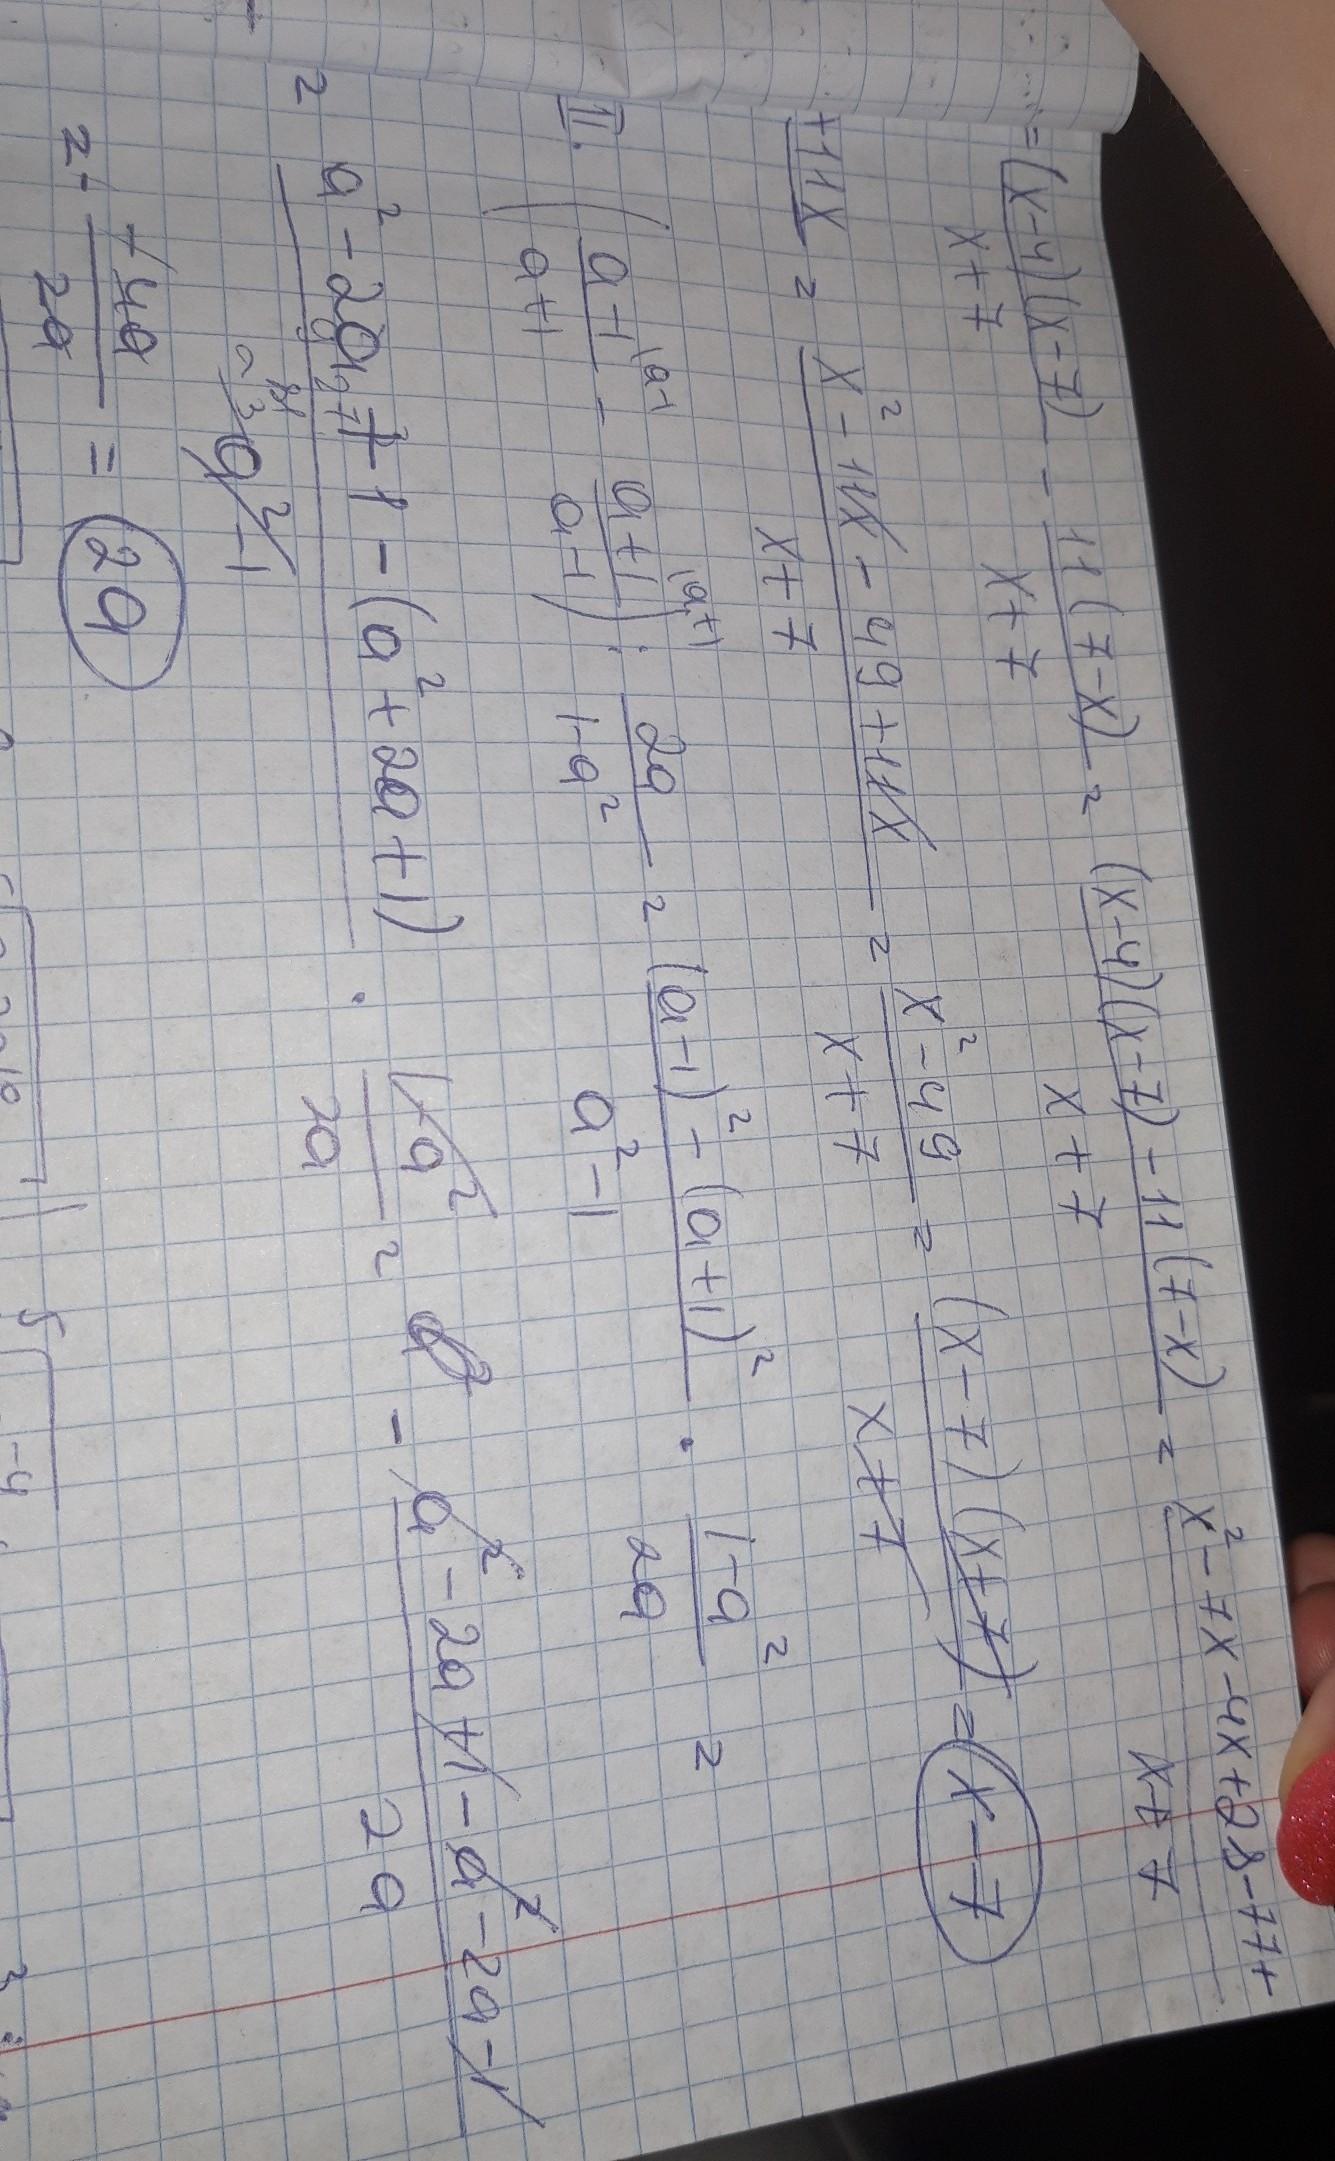 = (x-4)(x-7)/x+7 - 11(7-x)/x+7 = (x-4)(x-7)-11(7-x)/x+7 = x²-7x-4x+28-77+/x+7
+11x = x²-11x-49+11x/x+7 = x²-49/x+7 = (x-7)(x+7)/x+7 = x-7
II. (a-1/a+1 \a-1 - a+1/a-1 \a+1) : 2a/1-a² = (a-1)²-(a+1)²/a²-1 · 1-a²/2a =
= a²-2a+1-(a²+2a+1)/a²-1 · 1-a²/2a = - a²-2a+1-a²-2a-1/2a
= + 4a/2a = 2a